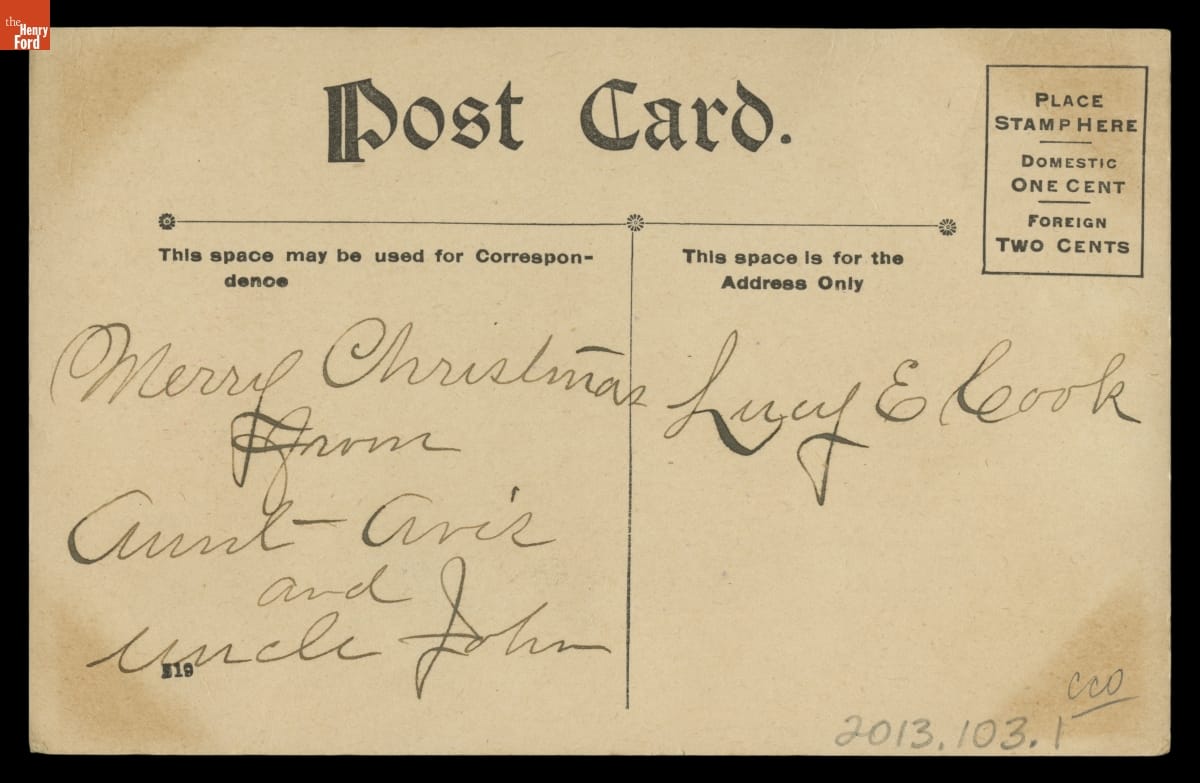 the
Henry
Ford
Post Card.
PLACE
STAMP HERE
DOMESTIC
ONE CENT
FOREIGN
TWO CENTS
This space may be used for Correspon-
dence
This space is for the
Address Only
Merry Christmas
From
Aunt Avis
and
Uncle John
Lucy E Cook
519
cco
2013.103.1